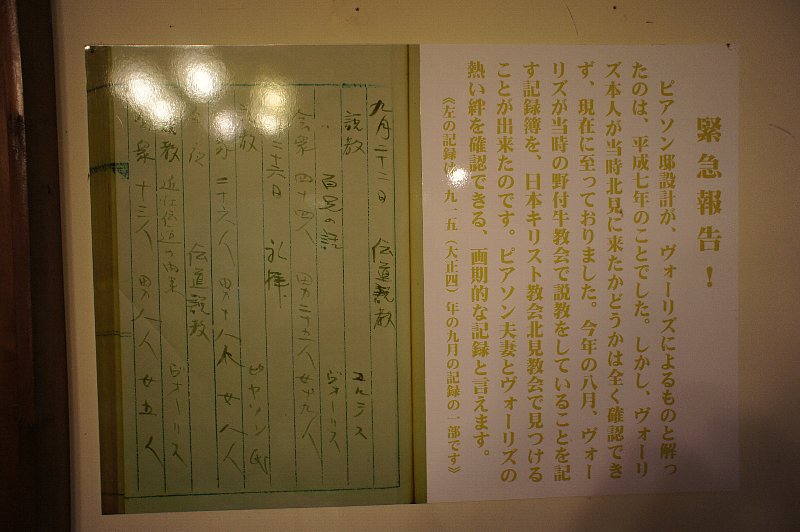 緊急報告!
ピアソン邸設計が、ヴォーリズによるものと解っ
たのは、平成七年のことでした。しかし、ヴォーリ
ズ本人が当時北見に来たかどうかは全く確認でき
ず、現在に至っておりました。今年の八月、ヴォー
リズが当時の野付牛教会で説教をしていることを記
す記録簿を、日本キリスト教会北見教会で見つける
ことが出来たのです。ピアソン夫妻とヴォーリズの
熱い絆を確認できる、画期的な記録と言えます。
《左の記録は 九一五(大正四)年の九月の記録の一部です》
九月二十二日 伝道説教
説教 ヴォーリス
会衆 四十四人 男二十五人 女十九人
二十六日 礼拝
ピヤソン氏
二十六人 男十八人 女八人
夜 伝道説教
ヴォーリス
衆 十三人 男八人 女五人